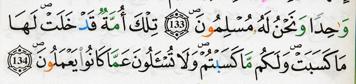 وَٰحِدًا وَنَحْنُ لَهُۥ مُسْلِمُونَ ١٣٣ تِلْكَ أُمَّةٌ قَدْ خَلَتْ لَهَا
مَا كَسَبَتْ وَلَكُم مَّا كَسَبْتُمْ وَلَا تُسْـَٔلُونَ عَمَّا كَانُوا۟ يَعْمَلُونَ ١٣٤